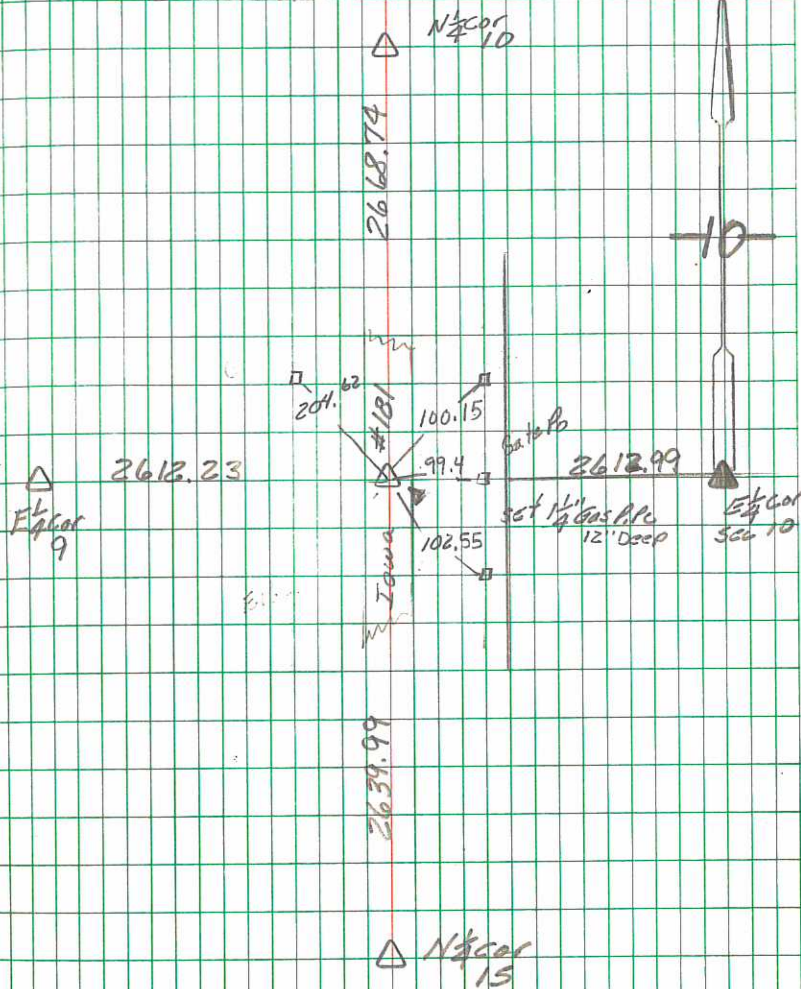 N 1/4 cor
10
2668.74
10
204.62
#181
100.15
99.4
2612.23
2612.99
E 1/4 cor
9
Set 1 1/4" Gas P.Pc
12" Deep
E 1/4 cor
Sec 10
102.55
Iowa
2639.99
N 1/4 cor
15